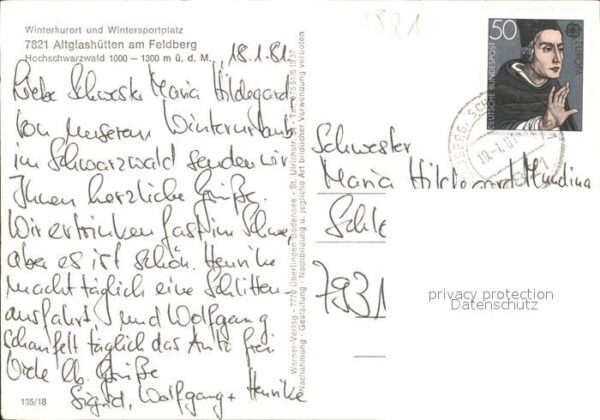 Winterkurort und Wintersportplatz
7821 Altglashütten am Feldberg
Hochschwarzwald 1000 – 1300 m ü. d. M.
18.1.81
Liebe Schwester Maria Hildegard
Von unserem Winterurlaub
im Schwarzwald senden wir
Ihnen herzliche Grüße.
Wir ertrinken fast im Schnee
aber es ist schön. Henrike
macht täglich eine Schlitten-
ausfahrt und Wolfgang
schaufelt täglich das Auto frei
Viele lb. Grüße
Sigrid, Wolfgang + Henrike
135/18
Werner-Verlag - 7770 Überlingen Bodensee - St. Ulrichstr. - Tel. 07551/61937
Nachahmung - Gestaltung - Nachbildung u. jegliche Art bildlicher Verwendung verboten
50
EUROPA
DEUTSCHE BUNDESPOST
Schwester
Maria Hildegard
Schle
7931
privacy protection
Datenschutz